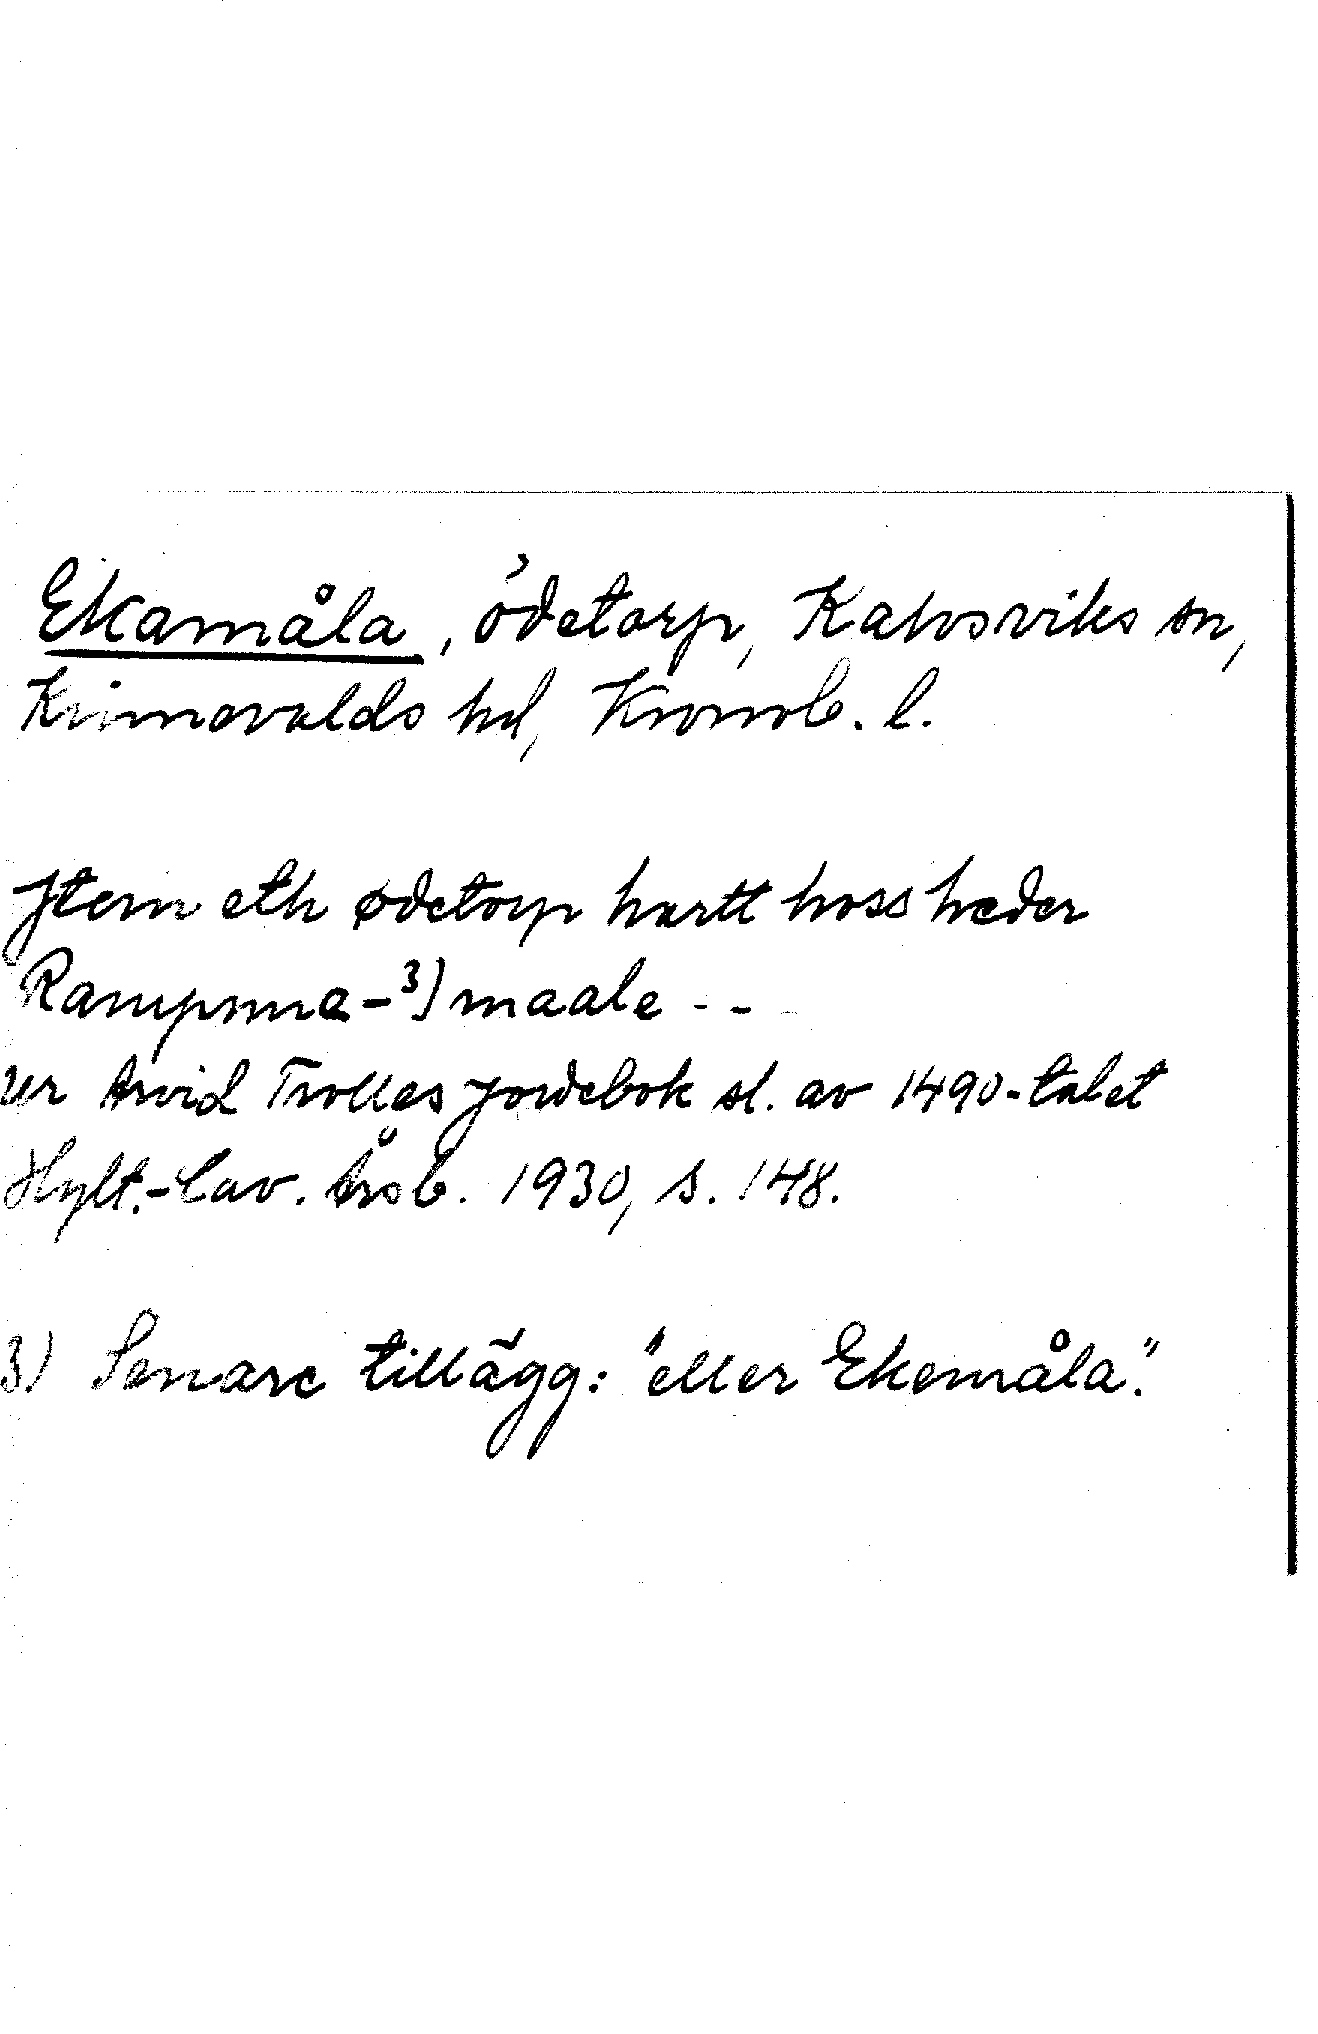 Ekamåla, ödetorp, Kalvsviks sn,
Kinnevalds hd, Kronob. l.
Jtem eth ødetorp hartt hoss heder
Rampnna-3) maale - -
ur Arvid Trolles jordebok sl. av 1490-talet
Hylt.-Cav. Årsb. 1930, s. 148.
3) Senare tillägg: "eller Ekemåla".